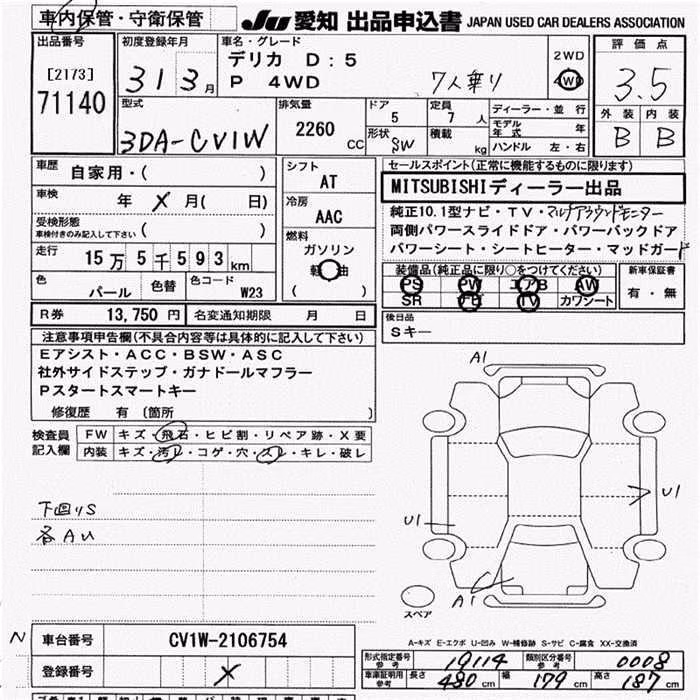 車内保管・守衛保管
JU 愛知 出品申込書 JAPAN USED CAR DEALERS ASSOCIATION
出品番号
[2173]
71140
初度登録年月
31 3月
車名・グレード
デリカ D:5
P 4WD
7人乗り
2WD
4WD
評価点
3.5
外装 内装
B B
型式
3DA-CV1W
排気量
2260 CC
ドア
5
形状
SW
定員
7 人
積載
kg
ディーラー・並行
モデル年式 年
ハンドル 左・右
車歴
自家用・( )
車検
年 X 月( 日)
受検形態
車検付きのみ記入して下さい ( )
走行
15万5千593km
色
パール
色替
色コード
W23
シフト
AT
冷房
AAC
燃料
ガソリン
軽油
( )
セールスポイント(正常に機能するものに限ります)
MITSUBISHIディーラー出品
純正10.1型ナビ・TV・マルチアラウンドモニター
両側パワースライドドア・パワーバックドア
パワーシート・シートヒーター・マッドガード
装備品(純正品に限り○をつけてください)
PS PW エアB AW
SR ナビ TV カワシート
新車保証書
有・無
R券 13,750円 名変通知期限 月 日
後日品
Sキー
注意事項申告欄(不具合内容等は具体的に記入して下さい)
Eアシスト・ACC・BSW・ASC
社外サイドステップ・ガナドールマフラー
Pスタートスマートキー
修復歴 有(箇所 )
検査員
記入欄
FW キズ・飛石・ヒビ割・リペア跡・X要
内装 キズ・汚レ・コゲ・穴・スレ・キレ・破レ
下回りS
各AU
A1
U1
U1
A1
スペア
A-キズ E-エクボ U-凹み W-補修跡 S-サビ C-腐食 XX-交換済
N
車台番号 CV1W-2106754
登録番号 X
形式指定番号 参考 19114 類別区分番号 参考 0008
車庫証明用 参考 長さ 480 cm 幅 179 cm 高さ 187 cm